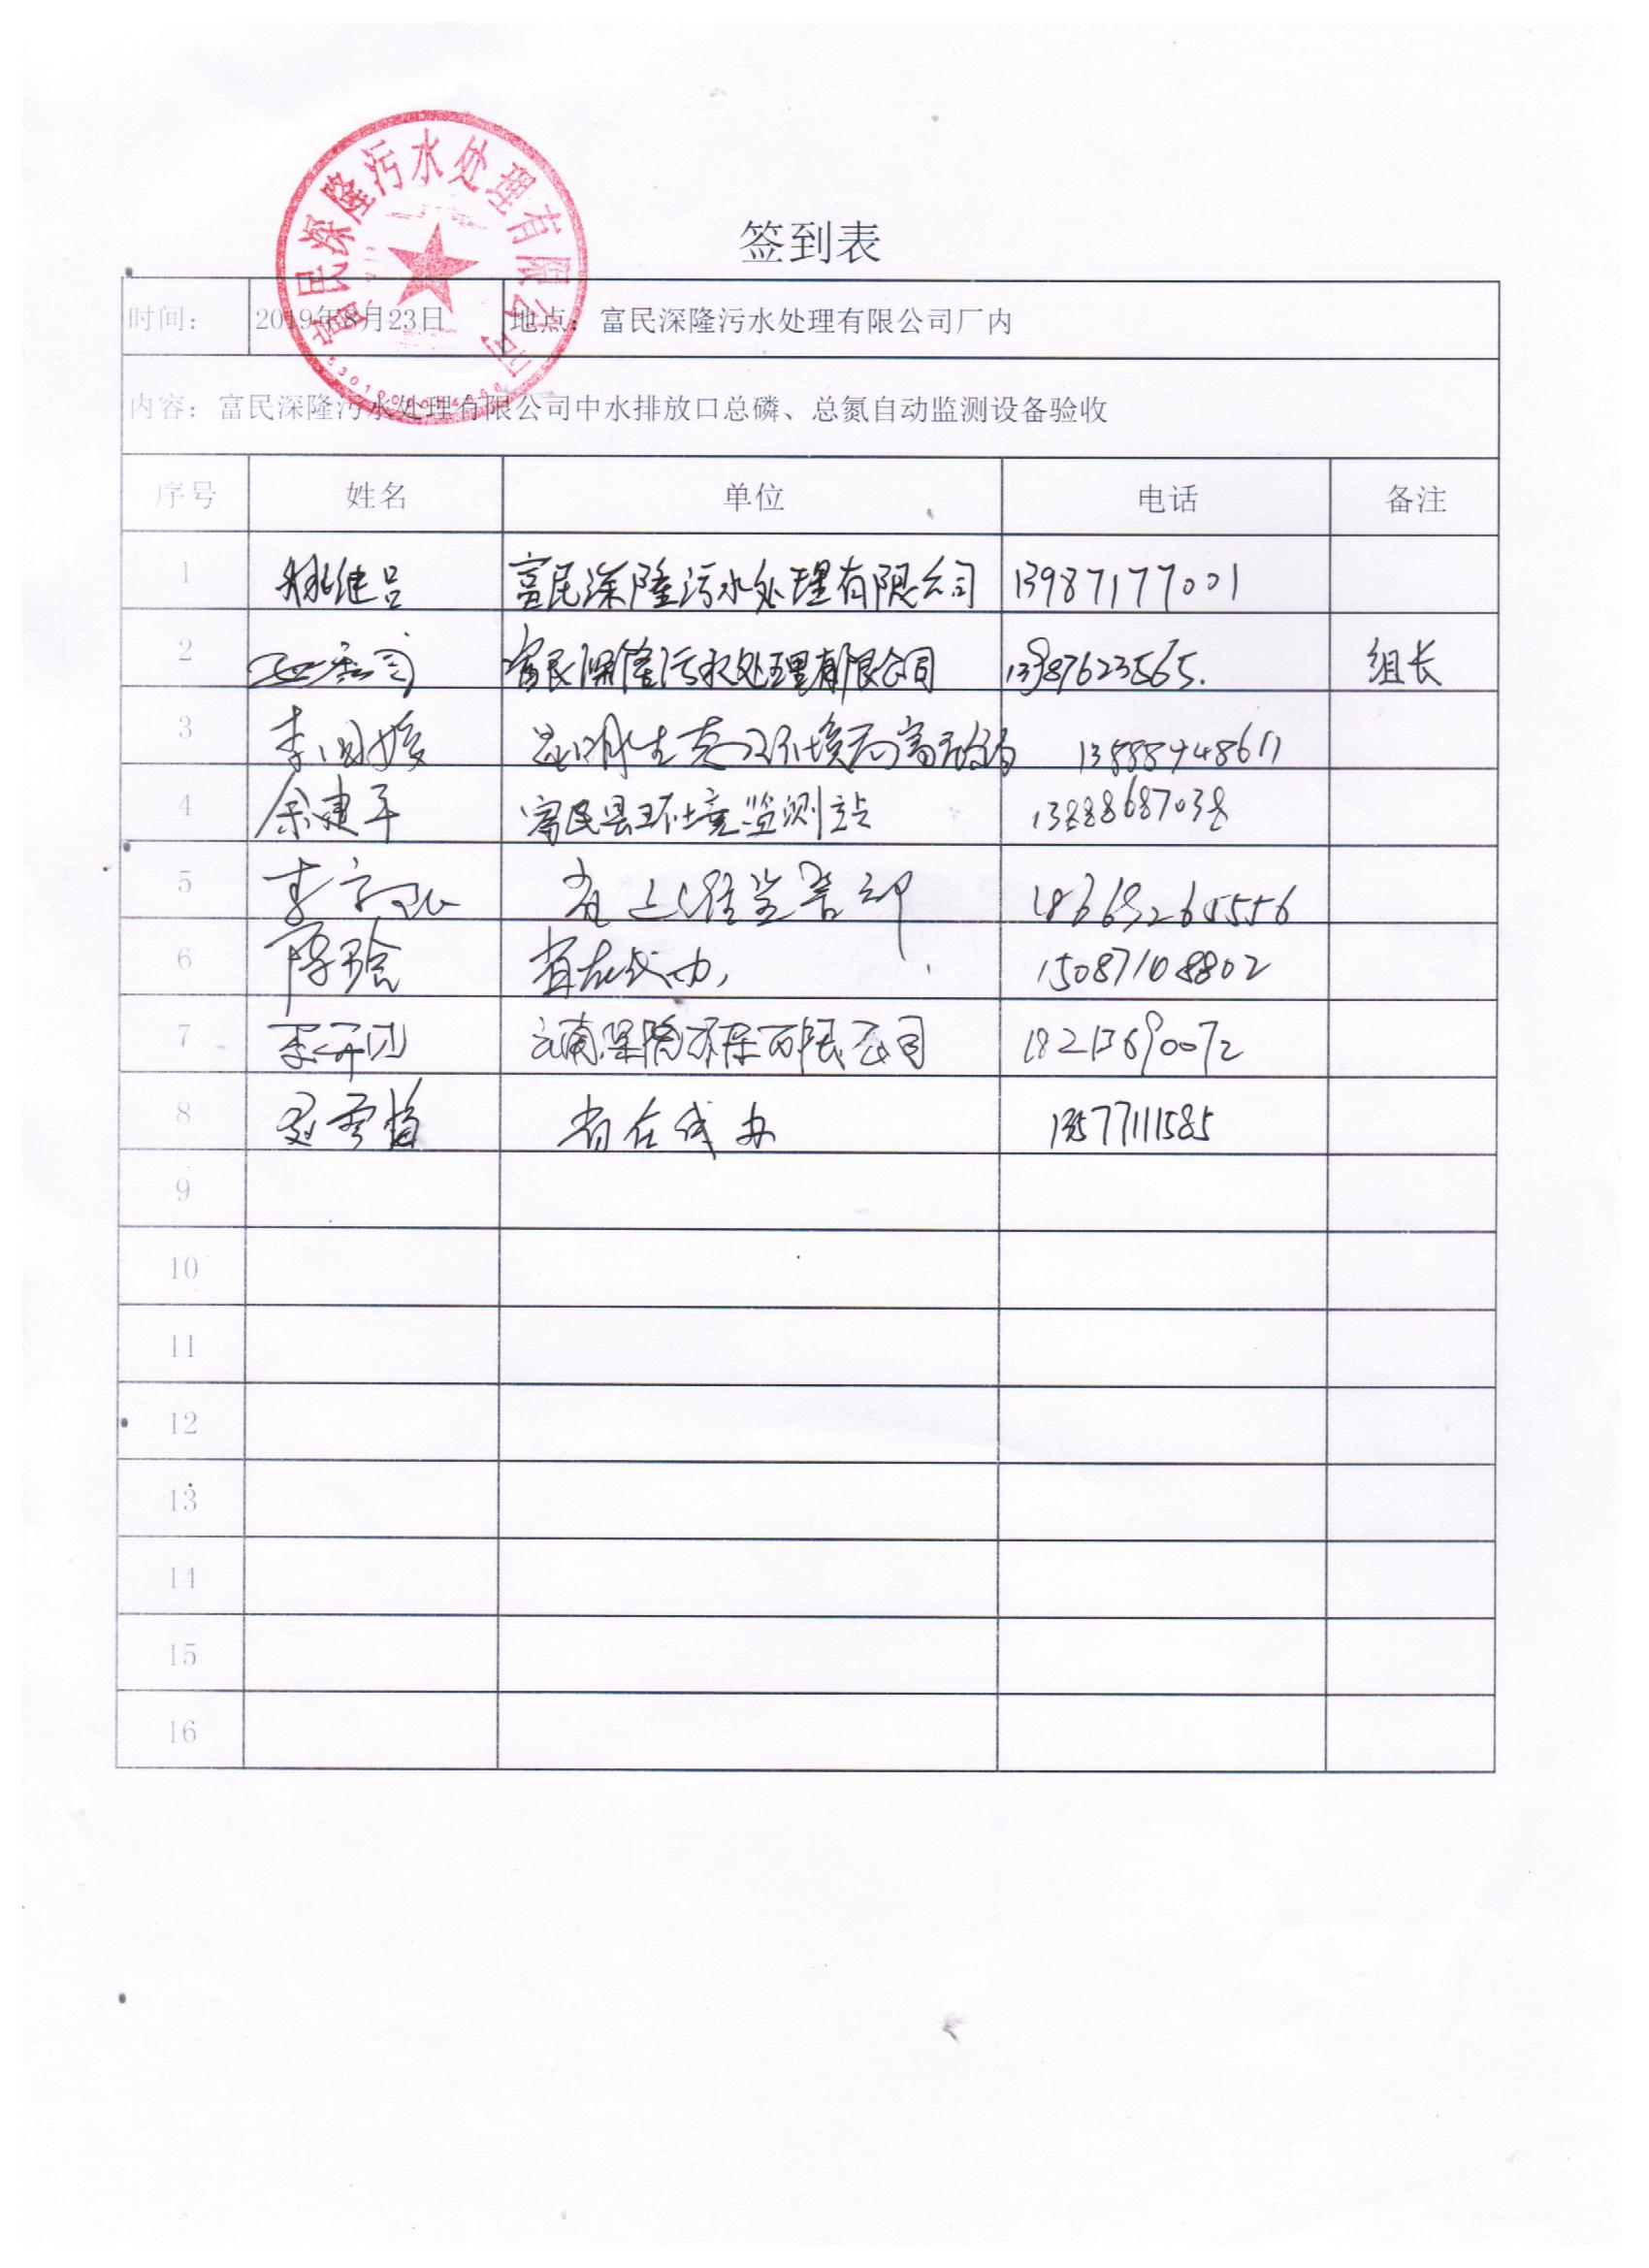 富民深隆污水处理有限公司
签到表
时间: 2019年8月23日 地点: 富民深隆污水处理有限公司厂内
内容: 富民深隆污水处理有限公司中水排放口总磷、总氮自动监测设备验收
序号 姓名 单位 电话 备注
1 姚继吕 富民深隆污水处理有限公司 13987177001
2 富民深隆污水处理有限公司 13987623565. 组长
3 李国媛 昆明生态环境局富民分局 13888948611
4 余建平 富民县环境监测站 13888687038
5 李 18669265556
6 陈晗 省在线办, 15087108802
7 李开 云南深隆环保有限公司 18213690072
8 雪梅 省在线办 13577111585
9
10
11
12
13
14
15
16